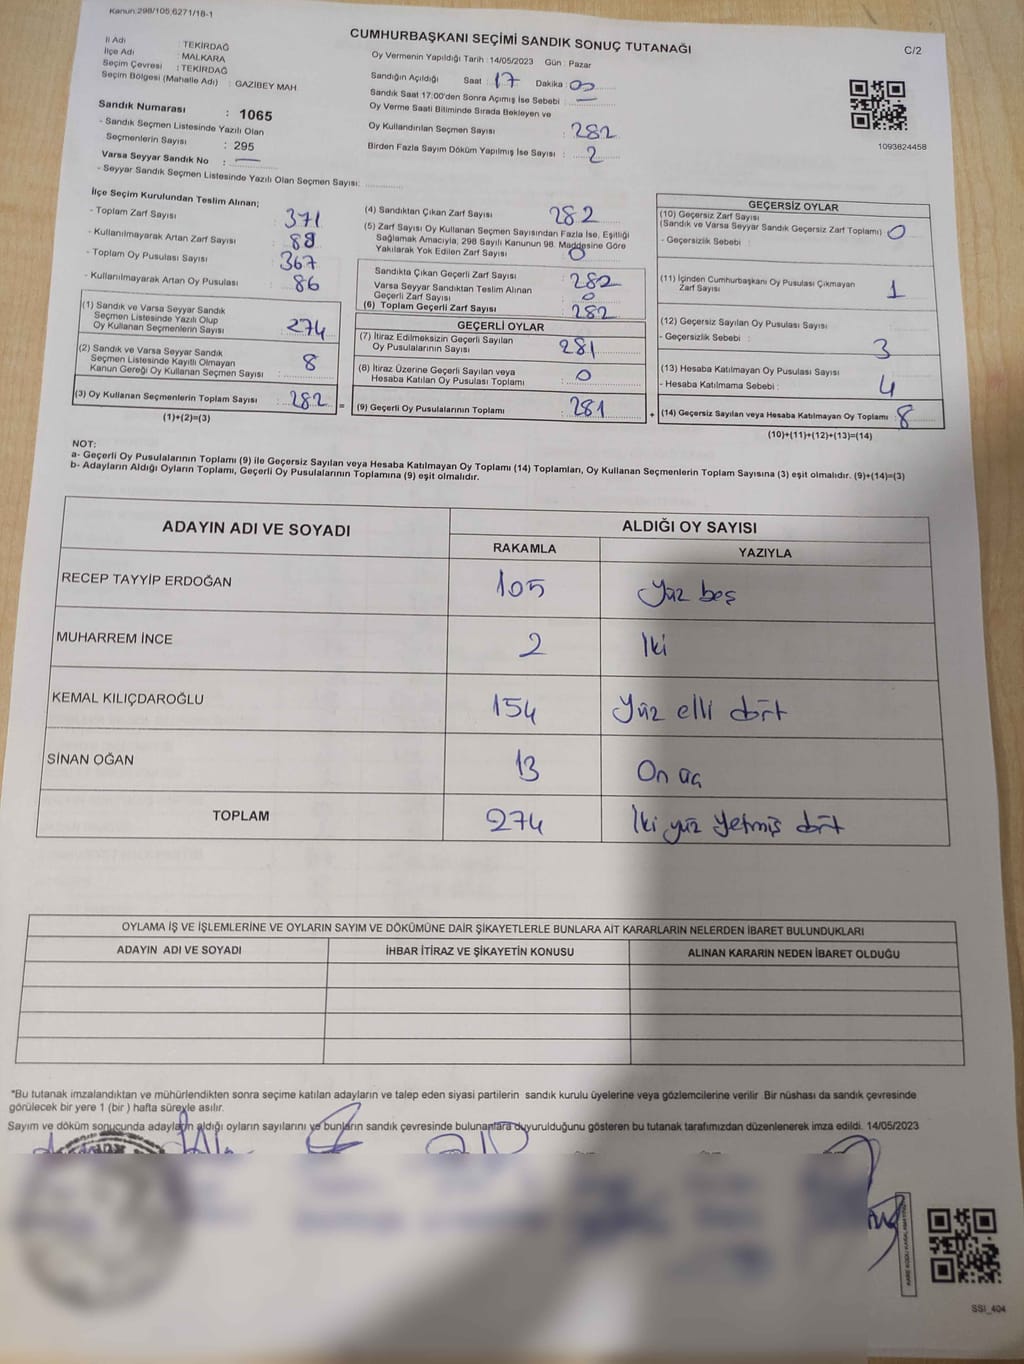 Kanun:298/105,6271/18-1
CUMHURBAŞKANI SEÇİMİ SANDIK SONUÇ TUTANAĞI
C/2
İl Adı : TEKİRDAĞ
İlçe Adı : MALKARA
Seçim Çevresi : TEKİRDAĞ
Seçim Bölgesi (Mahalle Adı) : GAZİBEY MAH.
Sandık Numarası : 1065
- Sandık Seçmen Listesinde Yazılı Olan
Seçmenlerin Sayısı : 295
Varsa Seyyar Sandık No : —
- Seyyar Sandık Seçmen Listesinde Yazılı Olan Seçmen Sayısı:
Oy Vermenin Yapıldığı Tarih : 14/05/2023 Gün : Pazar
Sandığın Açıldığı Saat : 17 Dakika : 00
Sandık Saat 17:00'den Sonra Açımış İse Sebebi : —
Oy Verme Saati Bitiminde Sırada Bekleyen ve
Oy Kullandırılan Seçmen Sayısı : 282
Birden Fazla Sayım Döküm Yapılmış İse Sayısı : 2
1093824458
İlçe Seçim Kurulundan Teslim Alınan;
- Toplam Zarf Sayısı : 371
- Kullanılmayarak Artan Zarf Sayısı : 89
- Toplam Oy Pusulası Sayısı : 367
- Kullanılmayarak Artan Oy Pusulası : 86
(1) Sandık ve Varsa Seyyar Sandık
Seçmen Listesinde Yazılı Olup
Oy Kullanan Seçmenlerin Sayısı : 274
(2) Sandık ve Varsa Seyyar Sandık
Seçmen Listesinde Kayıtlı Olmayan
Kanun Gereği Oy Kullanan Seçmen Sayısı : 8
(3) Oy Kullanan Seçmenlerin Toplam Sayısı : 282 =
(1)+(2)=(3)
(4) Sandıktan Çıkan Zarf Sayısı : 282
(5) Zarf Sayısı Oy Kullanan Seçmen Sayısından Fazla İse, Eşitliği
Sağlamak Amacıyla; 298 Sayılı Kanunun 98. Maddesine Göre
Yakılarak Yok Edilen Zarf Sayısı : 0
Sandıkta Çıkan Geçerli Zarf Sayısı : 282
Varsa Seyyar Sandıktan Teslim Alınan
Geçerli Zarf Sayısı : 0
(6) Toplam Geçerli Zarf Sayısı : 282
GEÇERLİ OYLAR
(7) İtiraz Edilmeksizin Geçerli Sayılan
Oy Pusulalarının Sayısı : 281
(8) İtiraz Üzerine Geçerli Sayılan veya
Hesaba Katılan Oy Pusulası Toplamı : 0
(9) Geçerli Oy Pusulalarının Toplamı : 281 +
GEÇERSİZ OYLAR
(10) Geçersiz Zarf Sayısı
(Sandık ve Varsa Seyyar Sandık Geçersiz Zarf Toplamı) : 0
- Geçersizlik Sebebi :
(11) İçinden Cumhurbaşkanı Oy Pusulası Çıkmayan
Zarf Sayısı : 1
(12) Geçersiz Sayılan Oy Pusulası Sayısı :
- Geçersizlik Sebebi : 3
(13) Hesaba Katılmayan Oy Pusulası Sayısı :
- Hesaba Katılmama Sebebi : 4
(14) Geçersiz Sayılan veya Hesaba Katılmayan Oy Toplamı : 8
(10)+(11)+(12)+(13)=(14)
NOT:
a- Geçerli Oy Pusulalarının Toplamı (9) ile Geçersiz Sayılan veya Hesaba Katılmayan Oy Toplamı (14) Toplamları, Oy Kullanan Seçmenlerin Toplam Sayısına (3) eşit olmalıdır. (9)+(14)=(3)
b- Adayların Aldığı Oyların Toplamı, Geçerli Oy Pusulalarının Toplamına (9) eşit olmalıdır.
ADAYIN ADI VE SOYADI ALDIĞI OY SAYISI
RAKAMLA YAZIYLA
RECEP TAYYİP ERDOĞAN 105 Yüz beş
MUHARREM İNCE 2 İki
KEMAL KILIÇDAROĞLU 154 Yüz elli dört
SİNAN OĞAN 13 On üç
TOPLAM 274 İki yüz yetmiş dört
OYLAMA İŞ VE İŞLEMLERİNE VE OYLARIN SAYIM VE DÖKÜMÜNE DAİR ŞİKAYETLERLE BUNLARA AİT KARARLARIN NELERDEN İBARET BULUNDUKLARI
ADAYIN ADI VE SOYADI İHBAR İTİRAZ VE ŞİKAYETİN KONUSU ALINAN KARARIN NEDEN İBARET OLDUĞU
*Bu tutanak imzalandıktan ve mühürlendikten sonra seçime katılan adayların ve talep eden siyasi partilerin sandık kurulu üyelerine veya gözlemcilerine verilir Bir nüshası da sandık çevresinde
görülecek bir yere 1 (bir ) hafta süreyle asılır.
Sayım ve döküm sonucunda adayların aldığı oyların sayılarını ve bunların sandık çevresinde bulunanlara duyurulduğunu gösteren bu tutanak tarafımızdan düzenlenerek imza edildi. 14/05/2023
SSI_404